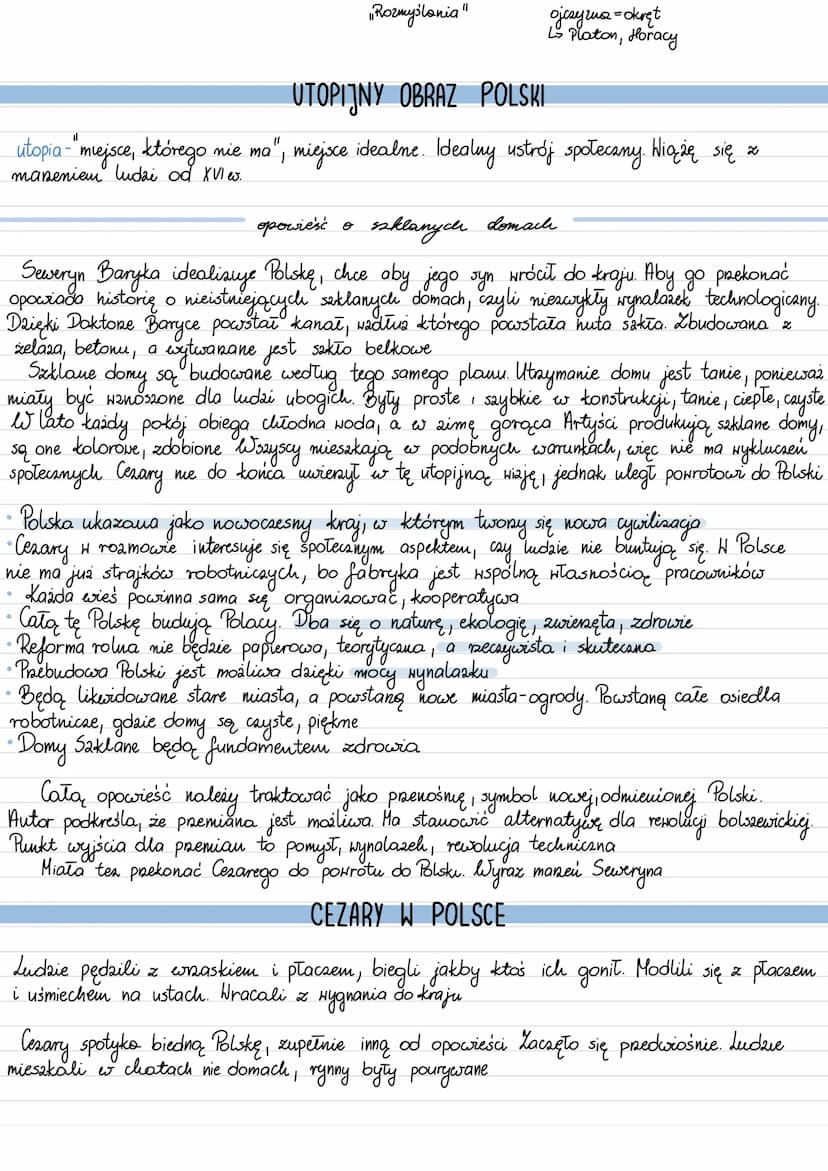 „Rozmyślania"
ojczyzna=okręt
↳ Platon, Horacy
UTOPIJNY OBRAZ POLSKI
utopia-"miejsce, którego nie ma", miejsce idealne. Idealny ustrój społeczny. Wiążę się z
marzeniem ludzi od XVI w.
opowieść o szklanych domach
Seweryn Baryka idealizuje Polskę, chce aby jego syn wrócił do kraju. Aby go przekonać
opowiada historię o nieistniejących szklanych domach, czyli niezwykły wynalazek technologiczny.
Dzięki Doktorze Baryce powstał kanał, wzdłuż którego powstała huta szkła. Zbudowana z
żelaza, betonu, a wytwarzane jest szkło belkowe
Szklane domy są budowane według tego samego planu. Utrzymanie domu jest tanie, ponieważ
miały być wznoszone dla ludzi ubogich. Były proste i szybkie w konstrukcji, tanie, ciepłe, czyste
W lato każdy pokój obiega chłodna woda, a w zimę gorąca Artyści produkują szklane domy,
są one kolorowe, zdobione Wszyscy mieszkają w podobnych warunkach, więc nie ma wykluczeń
społecznych Cezary nie do końca uwierzył w tę utopijną wizję, jednak uległ powrotowi do Polski
• Polska ukazana jako nowoczesny kraj, w którym tworzy się nowa cywilizacja
• Cezary w rozmowie interesuje się społecznym aspektem, czy ludzie nie buntują się. W Polsce
nie ma już strajków robotniczych, bo fabryka jest wspólną własnością pracowników
• Każda wieś powinna sama się organizować, kooperatywa
• Całą tę Polskę budują Polacy. Dba się o naturę, ekologię, zwierzęta, zdrowie
• Reforma rolna nie będzie papierowa, teorytyczna, a rzeczywista i skuteczna
• Przebudowa Polski jest możliwa dzięki mocy wynalazku
• Będą likwidowane stare miasta, a powstaną nowe miasta-ogrody. Powstaną całe osiedla
robotnicze, gdzie domy są czyste, piękne
• Domy Szklane będą fundamentem zdrowia
Całą opowieść należy traktować jako przenośnię, symbol nowej, odmienionej Polski.
Autor podkreśla, że przemiana jest możliwa. Ma stanowić alternatywę dla rewolucji bolszewickiej.
Punkt wyjścia dla przemian to pomysł, wynalazek, rewolucja techniczna
Miała też przekonać Cezarego do powrotu do Polski. Wyraz marzeń Seweryna
CEZARY W POLSCE
Ludzie pędzili z wrzaskiem i płaczem, biegli jakby ktoś ich gonił. Modlili się z płaczem
i uśmiechem na ustach. Wracali z wygnania do kraju
Cezary spotyka biedną Polskę, zupełnie inną od opowieści Zaczęło się przedwiośnie. Ludzie
mieszkali w chatach nie domach, rynny były pourywane